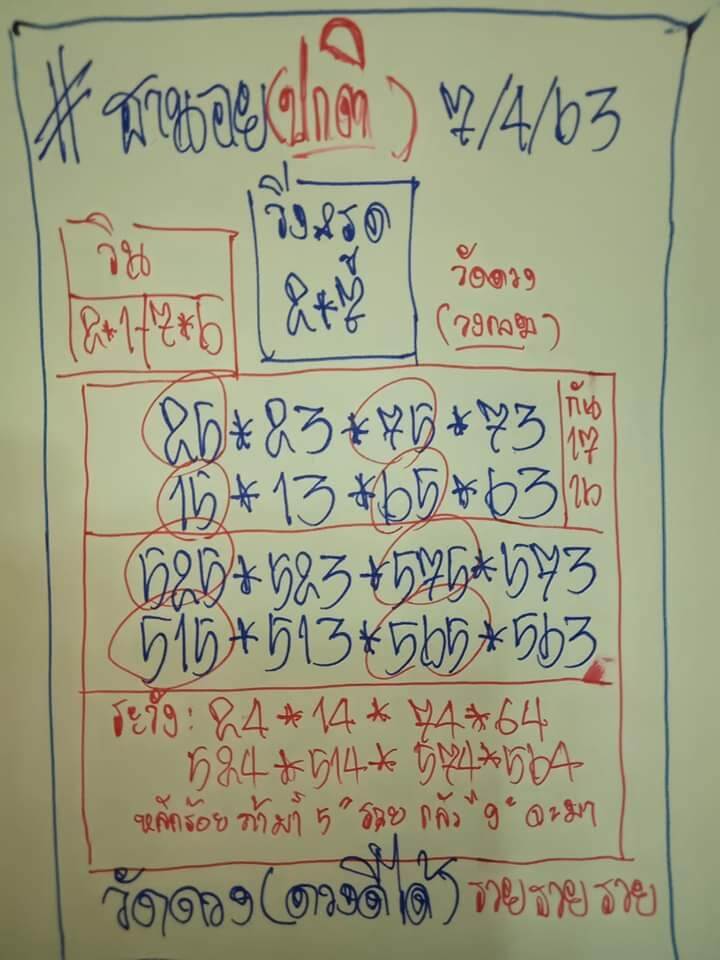 # ฮานอย (ปกติ) 7/4/63
วิ่งรูด
วิน
8*7
วัดดวง
8*1-7*6
(วงกลม)
85*83*75*73
กัน
15*13*65*63
585*583*575*573
515*513*565*563
ระวัง: 84*14*74*64
584*514*574*564
หลักร้อย ถ้ามา 5 "รวย กลัว "9" จะมา
วัดดวง (ดวงดีได้) รวย รวย รวย